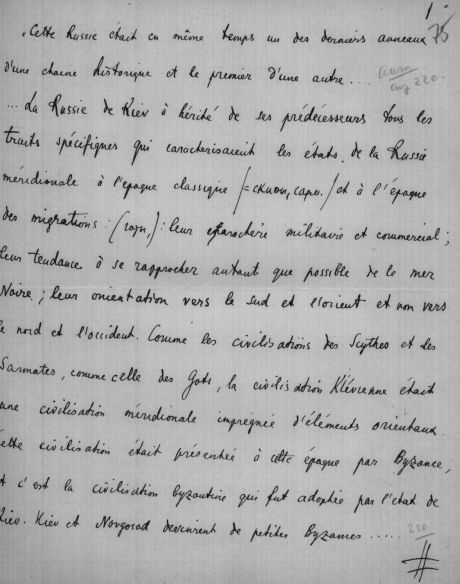 1
75
« Cette Russie était en même temps un des derniers anneaux
d'une chaîne historique et le premier d'une autre ....
220.
... La Russie de Kiev à hérité de ses prédécesseurs tous les
traits spécifiques qui caractérisaient les états de la Russie
méridionale à l'epoque classique /= скиѳы, сарм./ et à l'époque
des migrations : (готы) : leur caractère militaire et commercial ;
leur tendance à se rapprocher autant que possible de la mer
Noire ; leur orientation vers le sud et l'orient et non vers
le nord et l'occident. Comme les civilisations des Scythes et des
Sarmates, comme celle des Gots, la civilisation Kiévienne était
une civilisation méridionale imprégnée d'éléments orientaux.
Cette civilisation était présentée à cette époque par Byzance,
et c'est la civilisation byzantine qui fut adoptée par l'état de
Kiev. Kiev et Novgorod devinrent de petites Byzances .....
220